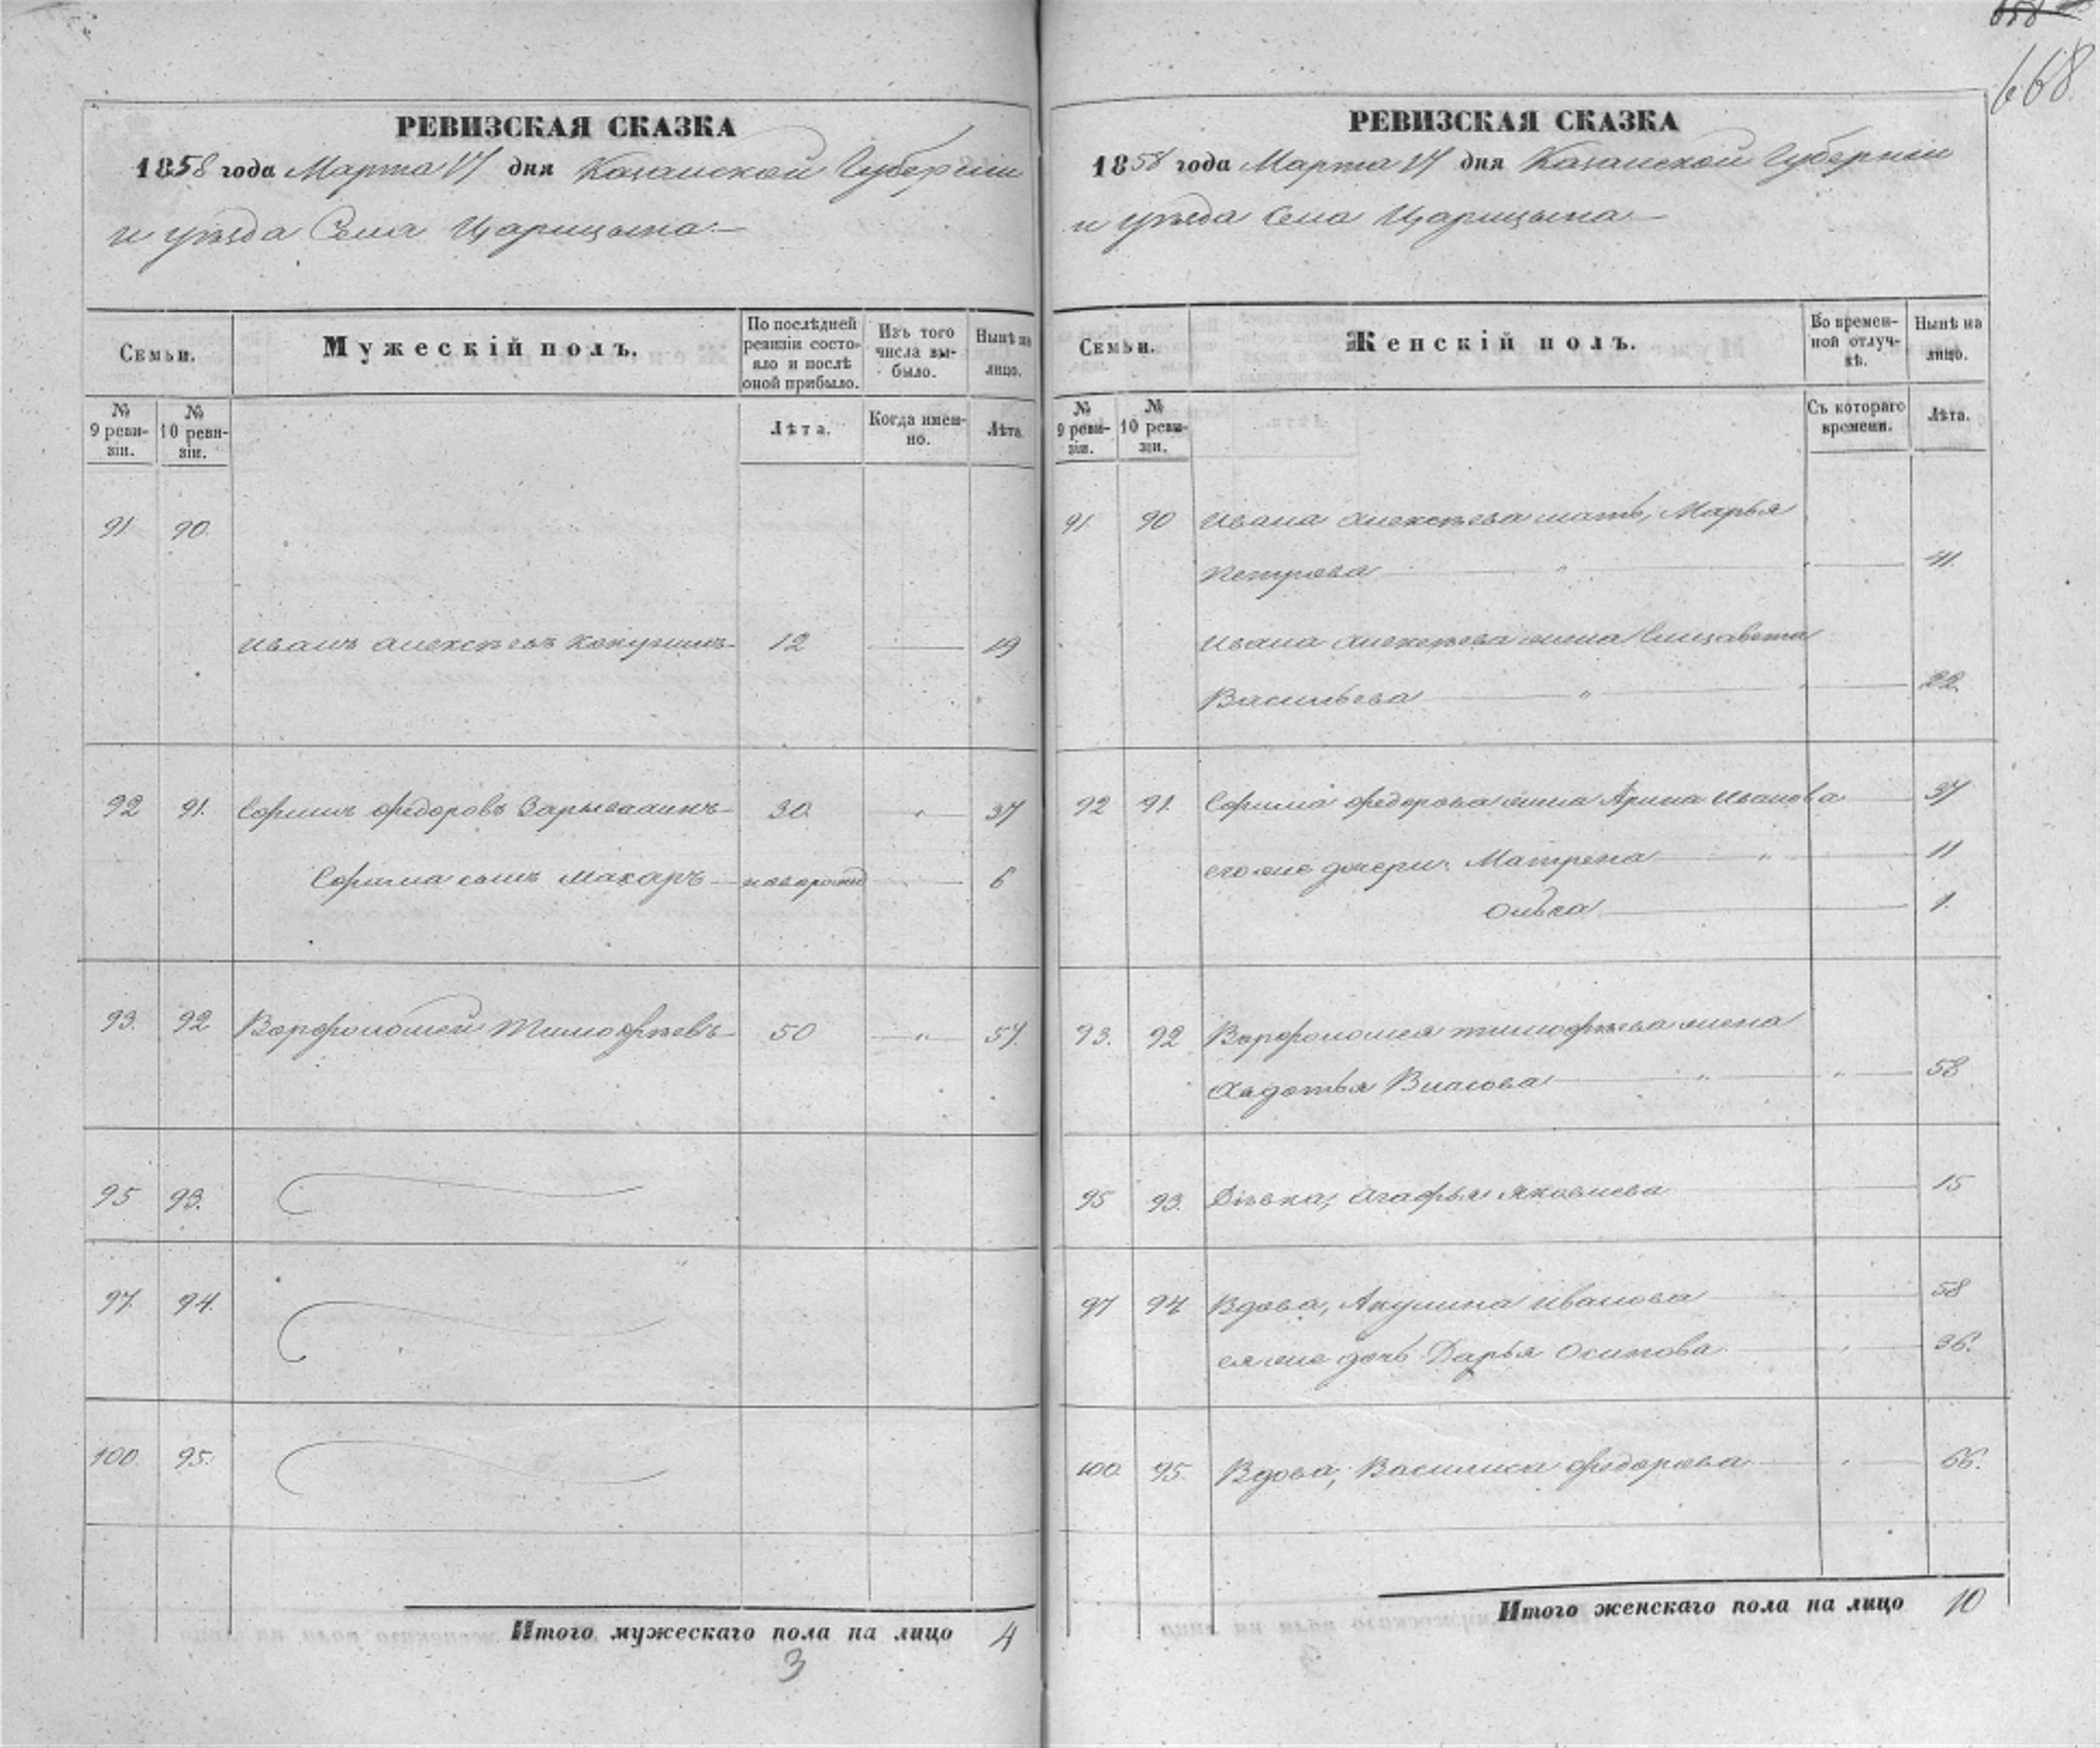 668
РЕВИЗСКАЯ СКАЗКА
1858 года Марта 17 дня Казанской Губерніи
и уѣзда Села Царицына
Семьи.
Мужескій полъ.
По послѣдней ревизіи состояло и послѣ оной прибыло.
Изъ того числа выбыло.
Нынѣ на лицо.
№ 9 ревизіи.
№ 10 ревизіи.
Лѣта.
Когда именно.
Лѣта.
91 90.
Иванъ Алексѣевъ 12 19
92 91. Софронъ Федоровъ 30. " 37
сынъ Макаръ новорожд 6
93. 92 Варфоломей Тимофѣевъ 50 " 57.
95 93.
97. 94.
100. 95.
Итого мужескаго пола на лицо 4
3
РЕВИЗСКАЯ СКАЗКА
1858 года Марта 17 дня Казанской Губерніи
и уѣзда Села Царицына
Семьи.
Женскій полъ.
Во временной отлучкѣ.
Нынѣ на лицо.
№ 9 ревизіи.
№ 10 ревизіи.
Съ котораго времени.
Лѣта.
91. 90 Ивана Алексѣева мать, Марья
Петрова " 41.
Ивана Алексѣева жена Елизавета
Васильева " 22.
92 91. Федорова жена Арина Иванова 37
его же дочери: Матрена " 11
1.
93. 92 Варфоломея Тимофѣева жена
Авдотья Власова " " 58
95 93. Дѣвка, Агафья Яковлева 15
97 94 Вдова, Акулина Иванова 58
ея же дочь Дарья Осипова 36.
100. 95. Вдова, Василиса Федорова 66.
Итого женскаго пола на лицо 10